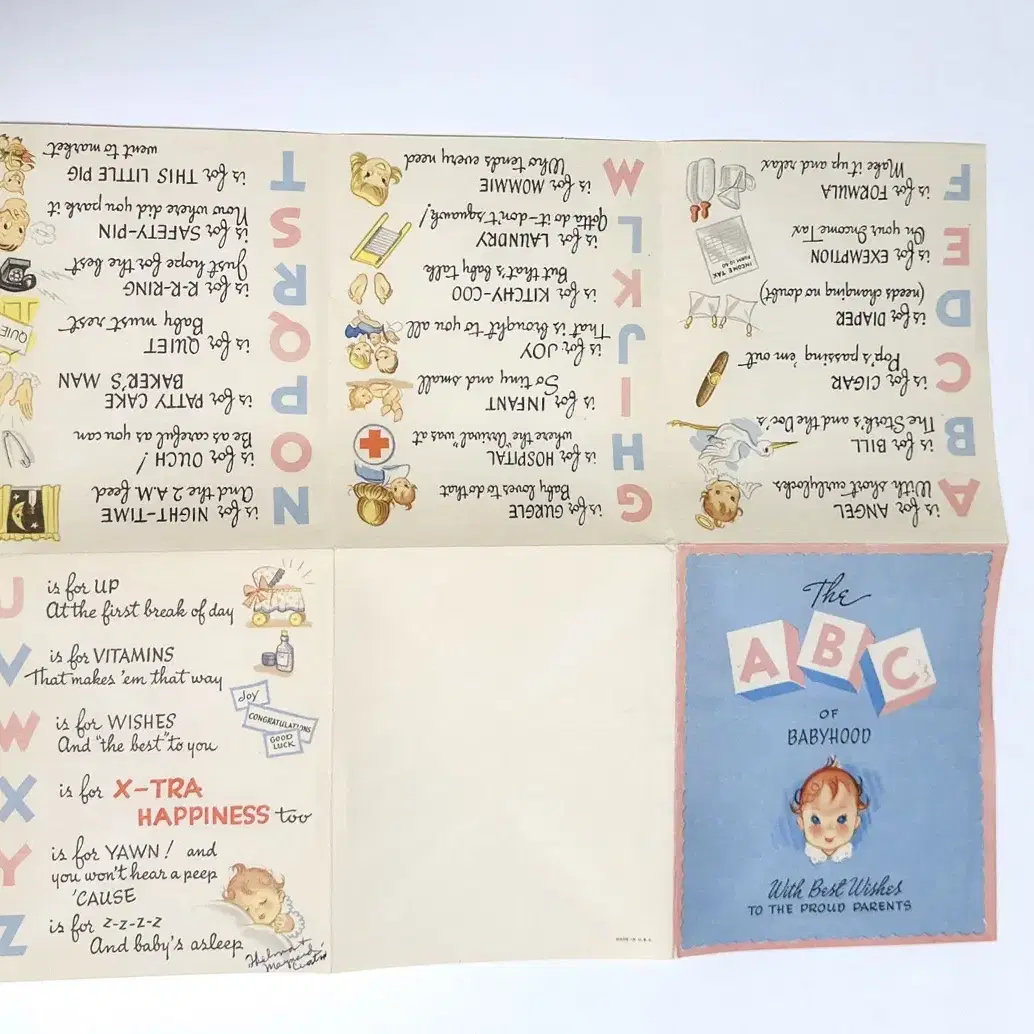 The
A B C's
OF
BABYHOOD
With Best Wishes
TO THE PROUD PARENTS
A is for ANGEL
With short curlylocks
B is for BILL
The Stork's and the Doc's
C is for CIGAR
Pop's passing 'em out
D is for DIAPER
(needs changing no doubt)
E is for EXEMPTION
On your Income Tax
INCOME TAX
FORM 10-40
F is for FORMULA
Make it up and relax
G is for GURGLE
Baby loves to do that
H is for HOSPITAL
where the "arrival" was at
I is for INFANT
So tiny and small
J is for JOY
That is brought to you all
K is for KITCHY-COO
But that's baby talk
L is for LAUNDRY
Gotta do it-don't squawk!
M is for MOMMIE
Who tends every need
N is for NIGHT-TIME
And the 2 A.M. feed
O is for OUCH!
Be as careful as you can
P is for PATTY CAKE
BAKER'S MAN
Q is for QUIET
Baby must rest
QUIET
R is for R-R-RING
Just hope for the best
S is for SAFETY-PIN
Now where did you park it
T is for THIS LITTLE PIG
went to market
U is for UP
At the first break of day
V is for VITAMINS
That makes 'em that way
W is for WISHES
And "the best" to you
Joy
CONGRATULATIONS
GOOD
LUCK
X is for X-TRA
HAPPINESS too
Y is for YAWN! and
you won't hear a peep
'CAUSE
Z is for z-z-z-z
And baby's asleep
Thelma +
Maynard
MADE IN U.S.A.